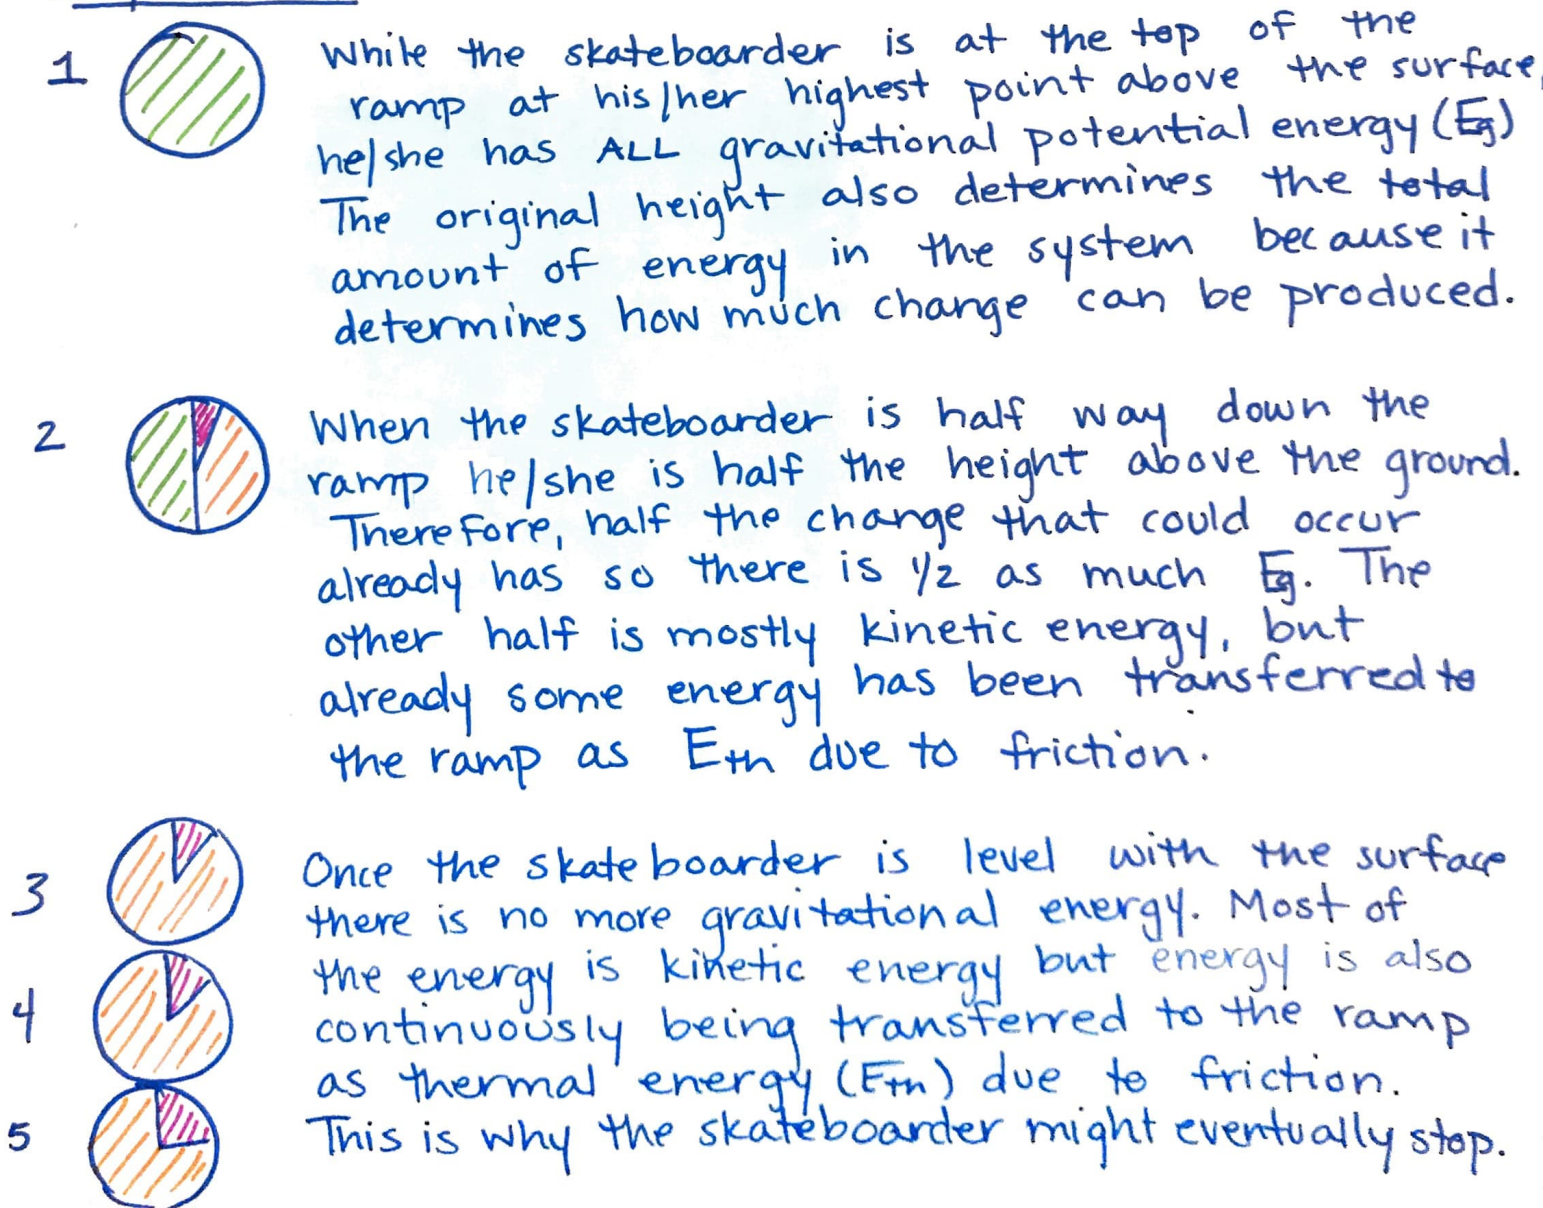 1
While the skateboarder is at the top of the
ramp at his/her highest point above the surface,
he/she has ALL gravitational potential energy (Eg)
The original height also determines the total
amount of energy in the system because it
determines how much change can be produced.
2
When the skateboarder is half way down the
ramp he/she is half the height above the ground.
Therefore, half the change that could occur
already has so there is 1/2 as much Eg. The
other half is mostly kinetic energy, but
already some energy has been transferred to
the ramp as Eth due to friction.
3
Once the skateboarder is level with the surface
there is no more gravitational energy. Most of
the energy is kinetic energy but energy is also
4
continuously being transferred to the ramp
as thermal energy (Eth) due to friction.
5
This is why the skateboarder might eventually stop.